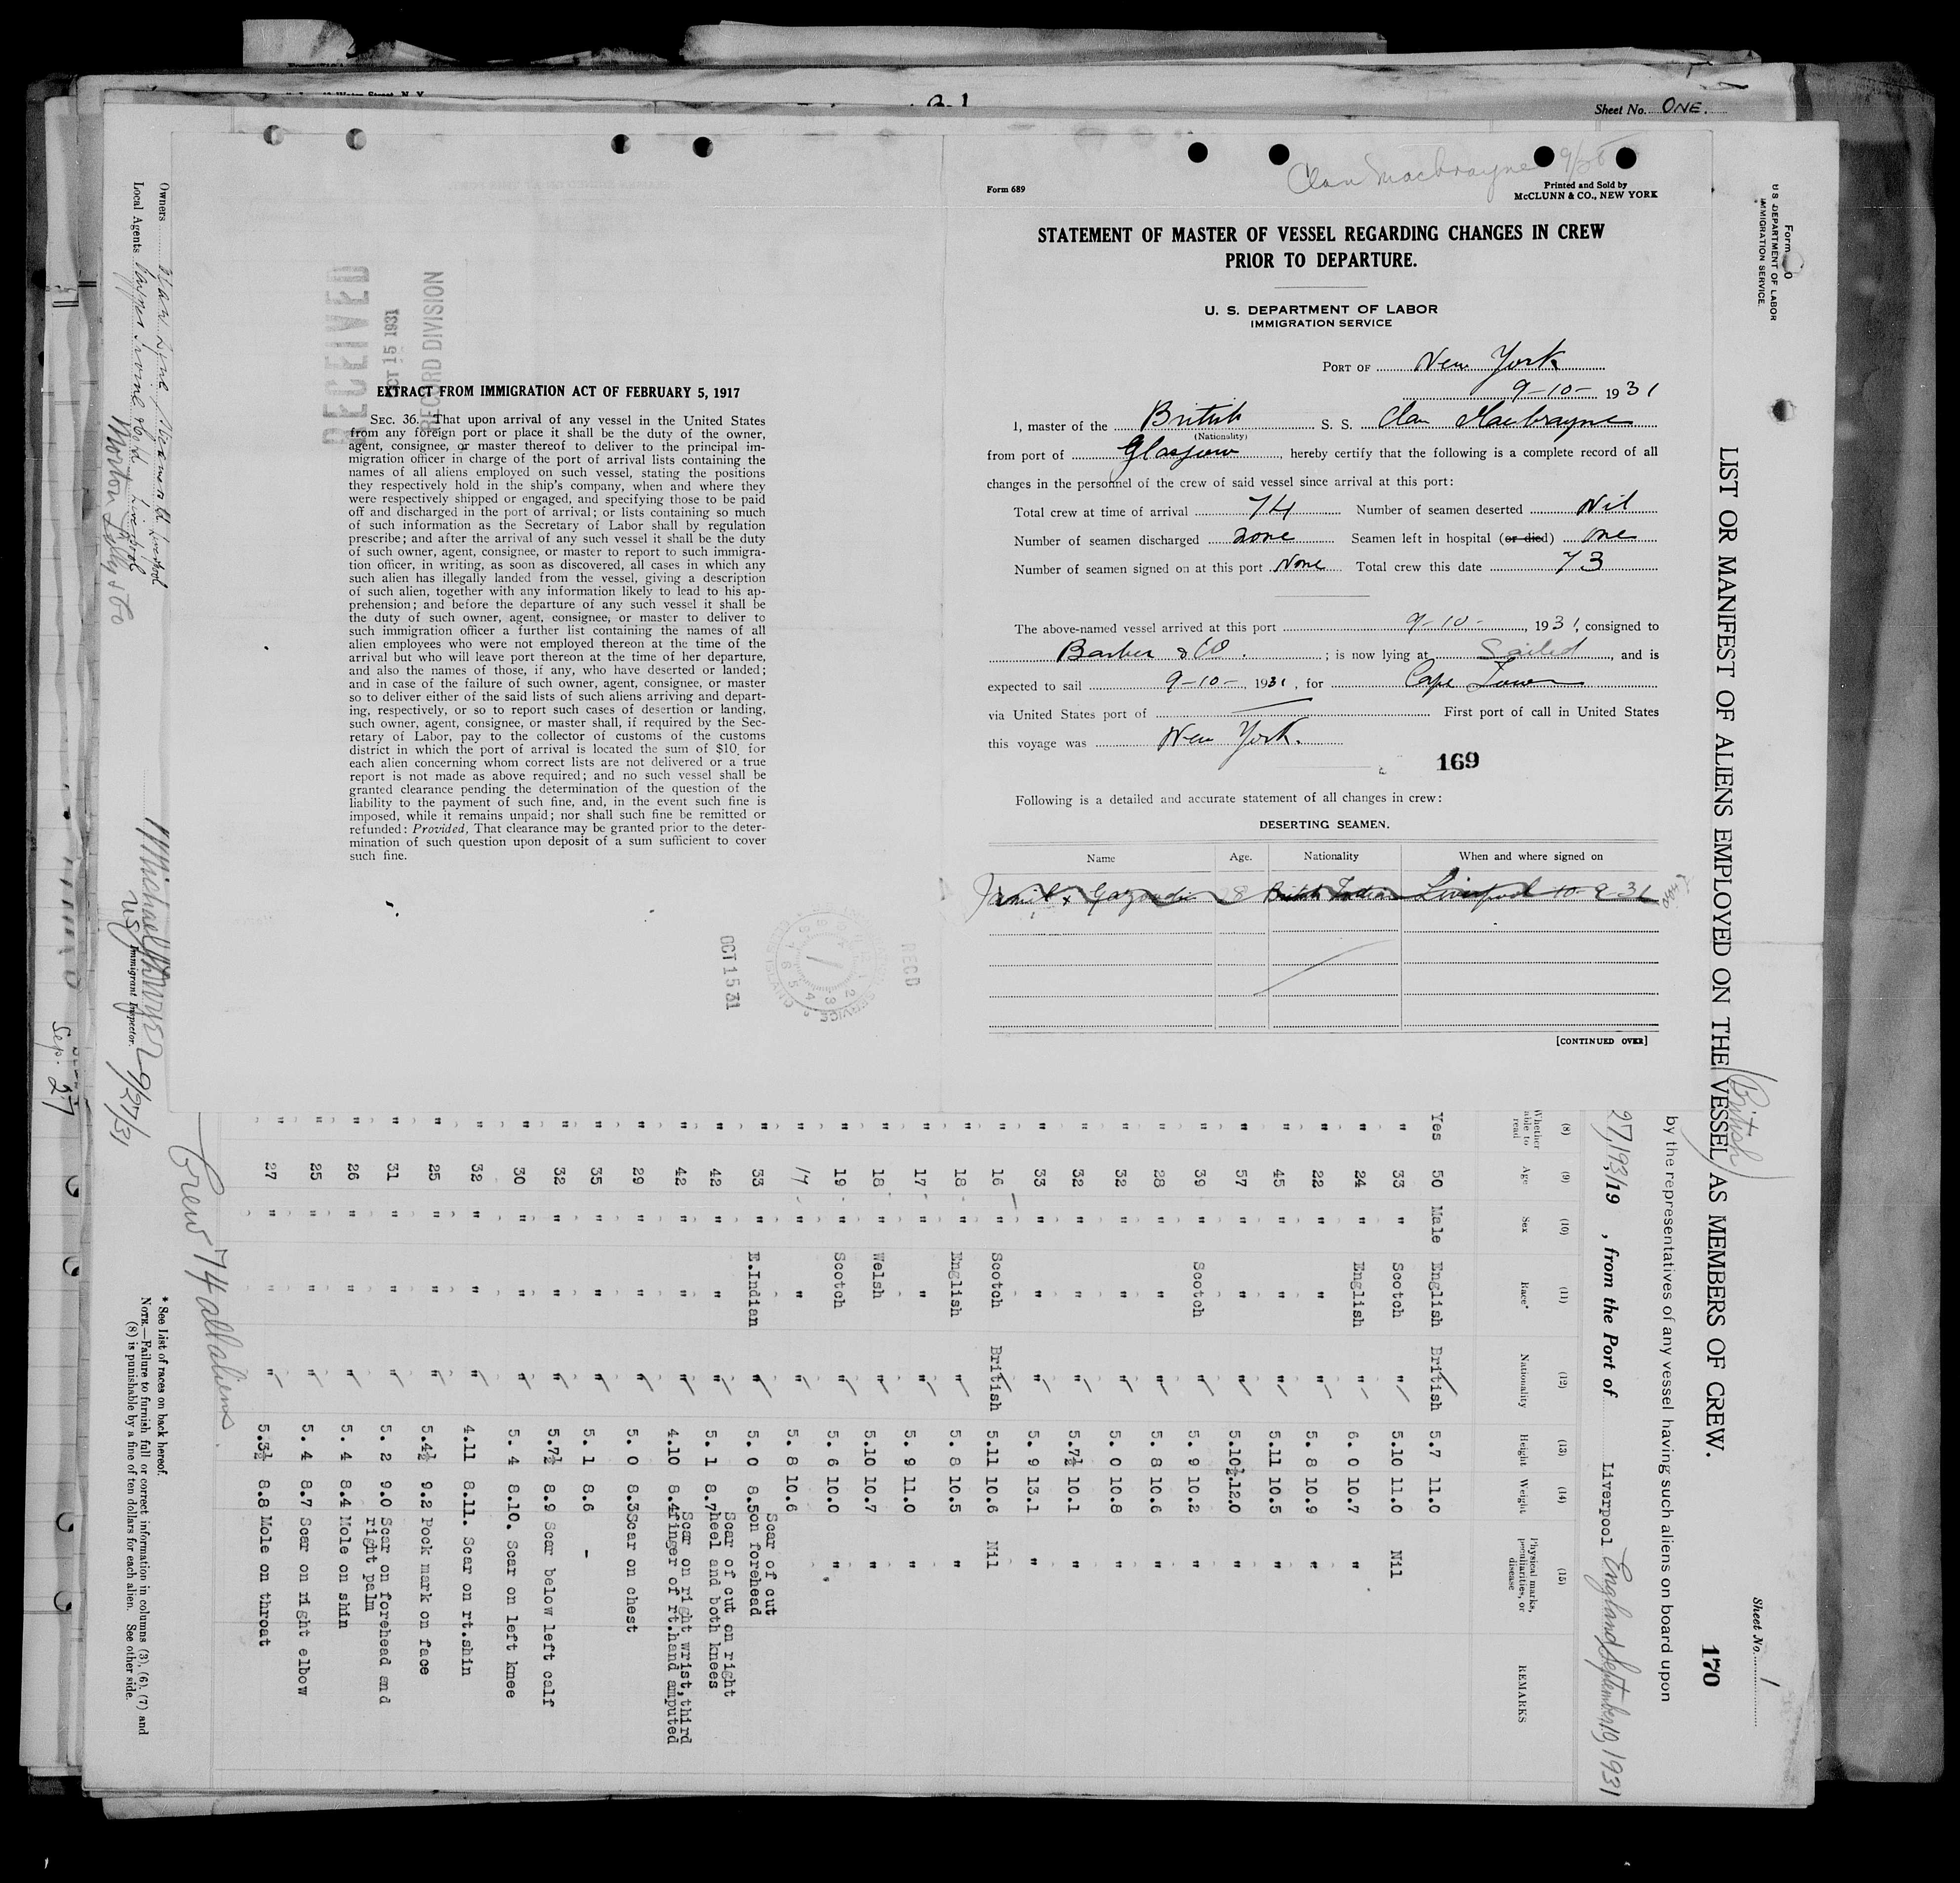 Sheet No. ONE.
Clan Macbrayne 9/28
Form 689
Printed and Sold by
McCLUNN & CO., NEW YORK
STATEMENT OF MASTER OF VESSEL REGARDING CHANGES IN CREW
PRIOR TO DEPARTURE.
U. S. DEPARTMENT OF LABOR
IMMIGRATION SERVICE
PORT OF New York
9-10- 1931
I, master of the British S. S. Clan Macbrayne
(Nationality)
from port of Glasgow, hereby certify that the following is a complete record of all
changes in the personnel of the crew of said vessel since arrival at this port:
Total crew at time of arrival 74 Number of seamen deserted Nil
Number of seamen discharged none Seamen left in hospital (or died) one
Number of seamen signed on at this port None Total crew this date 73
The above-named vessel arrived at this port 9-10-, 1931, consigned to
Barber & Co. ; is now lying at Sailed, and is
expected to sail 9-10-, 1931, for Cape Town
via United States port of First port of call in United States
this voyage was New York.
169
Following is a detailed and accurate statement of all changes in crew:
DESERTING SEAMEN.
Name Age. Nationality When and where signed on
28 British Indian Liverpool 10-9-31
[CONTINUED OVER]
RECEIVED
OCT 15 1931
RECORD DIVISION
EXTRACT FROM IMMIGRATION ACT OF FEBRUARY 5, 1917
SEC. 36. That upon arrival of any vessel in the United States
from any foreign port or place it shall be the duty of the owner,
agent, consignee, or master thereof to deliver to the principal im-
migration officer in charge of the port of arrival lists containing the
names of all aliens employed on such vessel, stating the positions
they respectively hold in the ship's company, when and where they
were respectively shipped or engaged, and specifying those to be paid
off and discharged in the port of arrival; or lists containing so much
of such information as the Secretary of Labor shall by regulation
prescribe; and after the arrival of any such vessel it shall be the duty
of such owner, agent, consignee, or master to report to such immigra-
tion officer, in writing, as soon as discovered, all cases in which any
such alien has illegally landed from the vessel, giving a description
of such alien, together with any information likely to lead to his ap-
prehension; and before the departure of any such vessel it shall be
the duty of such owner, agent, consignee, or master to deliver to
such immigration officer a further list containing the names of all
alien employees who were not employed thereon at the time of the
arrival but who will leave port thereon at the time of her departure,
and also the names of those, if any, who have deserted or landed;
and in case of the failure of such owner, agent, consignee, or master
so to deliver either of the said lists of such aliens arriving and depart-
ing, respectively, or so to report such cases of desertion or landing,
such owner, agent, consignee, or master shall, if required by the Sec-
retary of Labor, pay to the collector of customs of the customs
district in which the port of arrival is located the sum of $10 for
each alien concerning whom correct lists are not delivered or a true
report is not made as above required; and no such vessel shall be
granted clearance pending the determination of the question of the
liability to the payment of such fine, and, in the event such fine is
imposed, while it remains unpaid; nor shall such fine be remitted or
refunded: Provided, That clearance may be granted prior to the deter-
mination of such question upon deposit of a sum sufficient to cover
such fine.
OCT 15 31
RECD
U S DEPARTMENT OF LABOR
IMMIGRATION SERVICE
Sheet No. 1
170
LIST OR MANIFEST OF ALIENS EMPLOYED ON THE VESSEL AS MEMBERS OF CREW.
(British)
by the representatives of any vessel having such aliens on board upon
27, 1931/19 , from the Port of Liverpool England September 10, 1931
(8) (9) (10) (11) (12) (13) (14) (15)
Whether able to read Age Sex Race* Nationality Height Weight Physical marks, peculiarities, or disease REMARKS
Yes 50 Male English British 5.7 11.0
" 33 " Scotch " 5.10 11.0 Nil
" 24 " English " 6. 0 10.7 "
" 22 " " " 5. 8 10.9 "
" 45 " " " 5.11 10.5 "
" 57 " " " 5.10½ 12.0 "
" 39 " Scotch " 5. 9 10.2 "
" 28 " " " 5. 8 10.6 "
" 32 " " " 5. 0 10.8 "
" 32 " " " 5.7½ 10.1 "
" 33 " " " 5. 9 13.1 "
" 16 " Scotch British 5.11 10.6 Nil
" 18 " English " 5. 8 10.5 "
" 17 " " " 5. 9 11.0 "
" 18 " Welsh " 5.10 10.7 "
" 19 " Scotch " 5. 6 10.0 "
" 17 " " " 5. 8 10.6
" 33 " E.Indian " 5. 0 8.5 Scar of cut on forehead
" 42 " " " 5. 1 8.7 Scar of cut on right heel and both knees
" 42 " " " 4.10 8.4 Scar on right wrist, third finger of rt.hand amputed
" 29 " " " 5. 0 8.3 Scar on chest
" 35 " " " 5. 1 8.6 -
" 32 " " " 5.7½ 8.9 Scar below left calf
" 30 " " " 5. 4 8.10. Scar on left knee
" 32 " " " 4.11 8.11. Scar on rt.shin
" 25 " " " 5.4½ 9.2 Pock mark on face
" 31 " " " 5. 2 9.0 Scar on forehead and right palm
" 26 " " " 5. 4 8.4 Mole on shin
" 25 " " " 5. 4 8.7 Scar on right elbow
" 27 " " " 5.3½ 8.8 Mole on throat
Crew 74 all aliens.
* See List of races on back hereof.
NOTE.—Failure to furnish full or correct information in columns (3), (6), (7) and
(8) is punishable by a fine of ten dollars for each alien. See other side.
Owners
Local Agents
9/27/31
US Immigrant Inspector.
Sep. 27